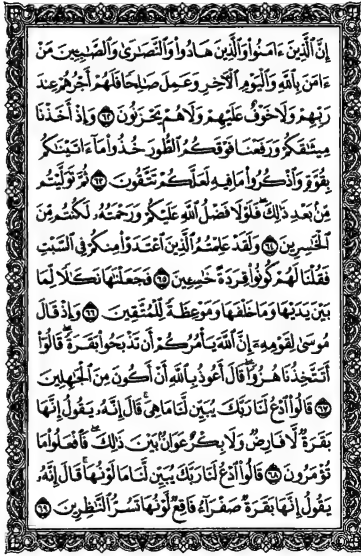 إِنَّ ٱلَّذِينَ ءَامَنُوا۟ وَٱلَّذِينَ هَادُوا۟ وَٱلنَّصَـٰرَىٰ وَٱلصَّـٰبِـِٔينَ مَنْ
ءَامَنَ بِٱللَّهِ وَٱلْيَوْمِ ٱلْـَٔاخِرِ وَعَمِلَ صَـٰلِحًا فَلَهُمْ أَجْرُهُمْ عِندَ
رَبِّهِمْ وَلَا خَوْفٌ عَلَيْهِمْ وَلَا هُمْ يَحْزَنُونَ ٦٢ وَإِذْ أَخَذْنَا
مِيثَـٰقَكُمْ وَرَفَعْنَا فَوْقَكُمُ ٱلطُّورَ خُذُوا۟ مَآ ءَاتَيْنَـٰكُم
بِقُوَّةٍ وَٱذْكُرُوا۟ مَا فِيهِ لَعَلَّكُمْ تَتَّقُونَ ٦٣ ثُمَّ تَوَلَّيْتُم
مِّنۢ بَعْدِ ذَٰلِكَ ۖ فَلَوْلَا فَضْلُ ٱللَّهِ عَلَيْكُمْ وَرَحْمَتُهُۥ لَكُنتُم مِّنَ
ٱلْخَـٰسِرِينَ ٦٤ وَلَقَدْ عَلِمْتُمُ ٱلَّذِينَ ٱعْتَدَوْا۟ مِنكُمْ فِى ٱلسَّبْتِ
فَقُلْنَا لَهُمْ كُونُوا۟ قِرَدَةً خَـٰسِـِٔينَ ٦٥ فَجَعَلْنَـٰهَا نَكَـٰلًا لِّمَا
بَيْنَ يَدَيْهَا وَمَا خَلْفَهَا وَمَوْعِظَةً لِّلْمُتَّقِينَ ٦٦ وَإِذْ قَالَ
مُوسَىٰ لِقَوْمِهِۦٓ إِنَّ ٱللَّهَ يَأْمُرُكُمْ أَن تَذْبَحُوا۟ بَقَرَةً ۖ قَالُوٓا۟
أَتَتَّخِذُنَا هُزُوًا ۖ قَالَ أَعُوذُ بِٱللَّهِ أَنْ أَكُونَ مِنَ ٱلْجَـٰهِلِينَ
٦٧ قَالُوا۟ ٱدْعُ لَنَا رَبَّكَ يُبَيِّن لَّنَا مَا هِىَ ۚ قَالَ إِنَّهُۥ يَقُولُ إِنَّهَا
بَقَرَةٌ لَّا فَارِضٌ وَلَا بِكْرٌ عَوَانٌۢ بَيْنَ ذَٰلِكَ ۖ فَٱفْعَلُوا۟ مَا
تُؤْمَرُونَ ٦٨ قَالُوا۟ ٱدْعُ لَنَا رَبَّكَ يُبَيِّن لَّنَا مَا لَوْنُهَا ۚ قَالَ إِنَّهُۥ
يَقُولُ إِنَّهَا بَقَرَةٌ صَفْرَآءُ فَاقِعٌ لَّوْنُهَا تَسُرُّ ٱلنَّـٰظِرِينَ ٦٩